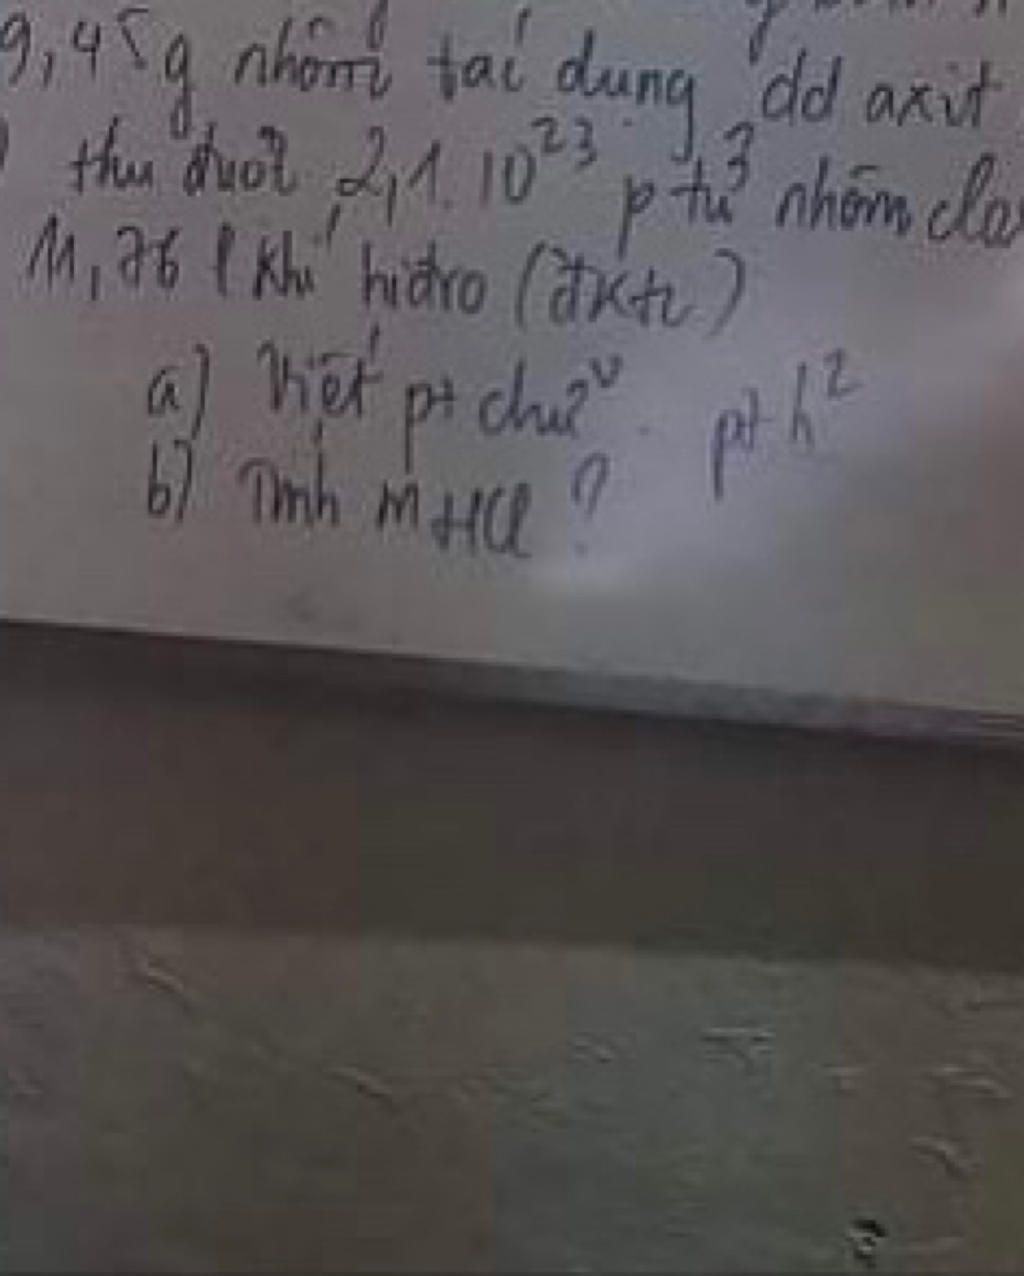 9,45g nhôm tác dụng dd axit
thu được 2,1.10²³ p tử nhôm clo
11,76 l khí hiđro (đktc)
a) Viết pt chữ. pt h²
b) Tính mHCl?